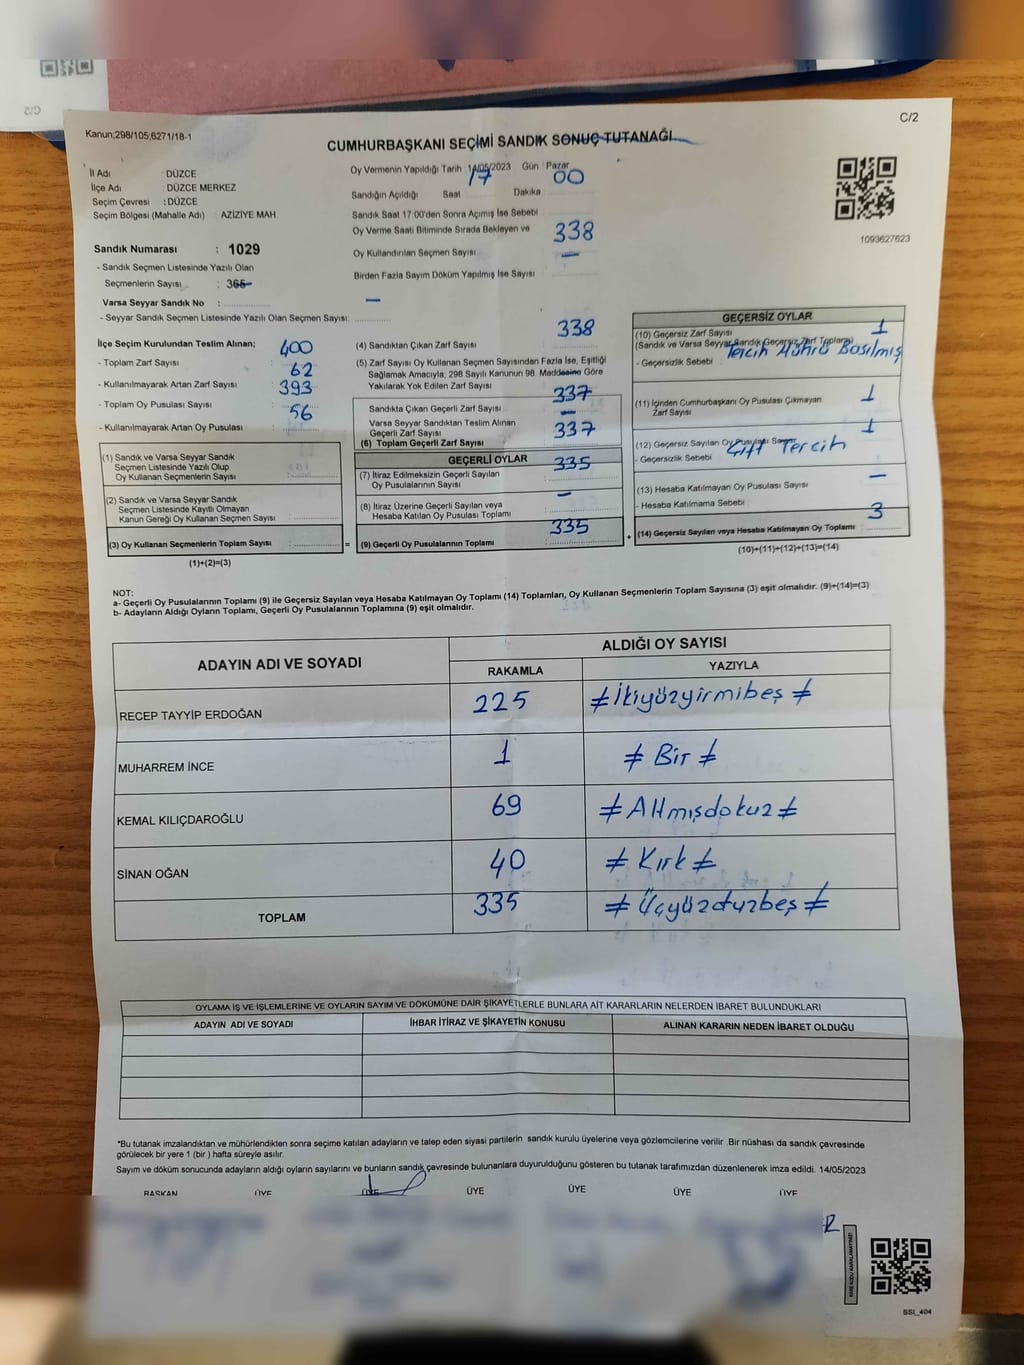 C/2
Kanun;298/105,6271/18-1
CUMHURBAŞKANI SEÇİMİ SANDIK SONUÇ TUTANAĞI
İl Adı : DÜZCE
İlçe Adı : DÜZCE MERKEZ
Seçim Çevresi : DÜZCE
Seçim Bölgesi (Mahalle Adı) : AZİZİYE MAH.
Sandık Numarası : 1029
- Sandık Seçmen Listesinde Yazılı Olan
Seçmenlerin Sayısı : 365
Varsa Seyyar Sandık No : –
- Seyyar Sandık Seçmen Listesinde Yazılı Olan Seçmen Sayısı:
Oy Vermenin Yapıldığı Tarih 14/05/2023 Gün : Pazar
Sandığın Açıldığı Saat 17 Dakika 00
Sandık Saat 17:00'den Sonra Açımış İse Sebebi
Oy Verme Saati Bitiminde Sırada Bekleyen ve
Oy Kullandırılan Seçmen Sayısı 338
Birden Fazla Sayım Döküm Yapılmış İse Sayısı –
1093627623
İlçe Seçim Kurulundan Teslim Alınan;
- Toplam Zarf Sayısı 400
- Kullanılmayarak Artan Zarf Sayısı 62
- Toplam Oy Pusulası Sayısı 393
- Kullanılmayarak Artan Oy Pusulası 56
(1) Sandık ve Varsa Seyyar Sandık
Seçmen Listesinde Yazılı Olup
Oy Kullanan Seçmenlerin Sayısı
(2) Sandık ve Varsa Seyyar Sandık
Seçmen Listesinde Kayıtlı Olmayan
Kanun Gereği Oy Kullanan Seçmen Sayısı
(3) Oy Kullanan Seçmenlerin Toplam Sayısı :
(1)+(2)=(3)
(4) Sandıktan Çıkan Zarf Sayısı 338
(5) Zarf Sayısı Oy Kullanan Seçmen Sayısından Fazla İse, Eşitliği
Sağlamak Amacıyla; 298 Sayılı Kanunun 98. Maddesine Göre
Yakılarak Yok Edilen Zarf Sayısı –
Sandıkta Çıkan Geçerli Zarf Sayısı 337
Varsa Seyyar Sandıktan Teslim Alınan
Geçerli Zarf Sayısı –
(6) Toplam Geçerli Zarf Sayısı 337
GEÇERLİ OYLAR
(7) İtiraz Edilmeksizin Geçerli Sayılan
Oy Pusulalarının Sayısı 335
(8) İtiraz Üzerine Geçerli Sayılan veya
Hesaba Katılan Oy Pusulası Toplamı –
= (9) Geçerli Oy Pusulalarının Toplamı 335
GEÇERSİZ OYLAR
(10) Geçersiz Zarf Sayısı 1
(Sandık ve Varsa Seyyar Sandık Geçersiz Zarf Toplamı)
- Geçersizlik Sebebi Tercih Mührü Basılmış
(11) İçinden Cumhurbaşkanı Oy Pusulası Çıkmayan
Zarf Sayısı 1
(12) Geçersiz Sayılan Oy Pusulası Sayısı 1
- Geçersizlik Sebebi Çift Tercih
(13) Hesaba Katılmayan Oy Pusulası Sayısı –
- Hesaba Katılmama Sebebi
+ (14) Geçersiz Sayılan veya Hesaba Katılmayan Oy Toplamı 3
(10)+(11)+(12)+(13)=(14)
NOT:
a- Geçerli Oy Pusulalarının Toplamı (9) ile Geçersiz Sayılan veya Hesaba Katılmayan Oy Toplamı (14) Toplamları, Oy Kullanan Seçmenlerin Toplam Sayısına (3) eşit olmalıdır. (9)+(14)=(3)
b- Adayların Aldığı Oyların Toplamı, Geçerli Oy Pusulalarının Toplamına (9) eşit olmalıdır.
ADAYIN ADI VE SOYADI ALDIĞI OY SAYISI
RAKAMLA YAZIYLA
RECEP TAYYİP ERDOĞAN 225 ≠ İkiyüzyirmibeş ≠
MUHARREM İNCE 1 ≠ Bir ≠
KEMAL KILIÇDAROĞLU 69 ≠ Altmışdokuz ≠
SİNAN OĞAN 40 ≠ Kırk ≠
TOPLAM 335 ≠ Üçyüzotuzbeş ≠
OYLAMA İŞ VE İŞLEMLERİNE VE OYLARIN SAYIM VE DÖKÜMÜNE DAİR ŞİKAYETLERLE BUNLARA AİT KARARLARIN NELERDEN İBARET BULUNDUKLARI
ADAYIN ADI VE SOYADI İHBAR İTİRAZ VE ŞİKAYETİN KONUSU ALINAN KARARIN NEDEN İBARET OLDUĞU
*Bu tutanak imzalandıktan ve mühürlendikten sonra seçime katılan adayların ve talep eden siyasi partilerin sandık kurulu üyelerine veya gözlemcilerine verilir .Bir nüshası da sandık çevresinde
görülecek bir yere 1 (bir ) hafta süreyle asılır.
Sayım ve döküm sonucunda adayların aldığı oyların sayılarını ve bunların sandık çevresinde bulunanlara duyurulduğunu gösteren bu tutanak tarafımızdan düzenlenerek imza edildi. 14/05/2023
BAŞKAN ÜYE ÜYE ÜYE ÜYE ÜYE ÜYE
KARE KODU KARALAMAYINIZ!
SSI_404